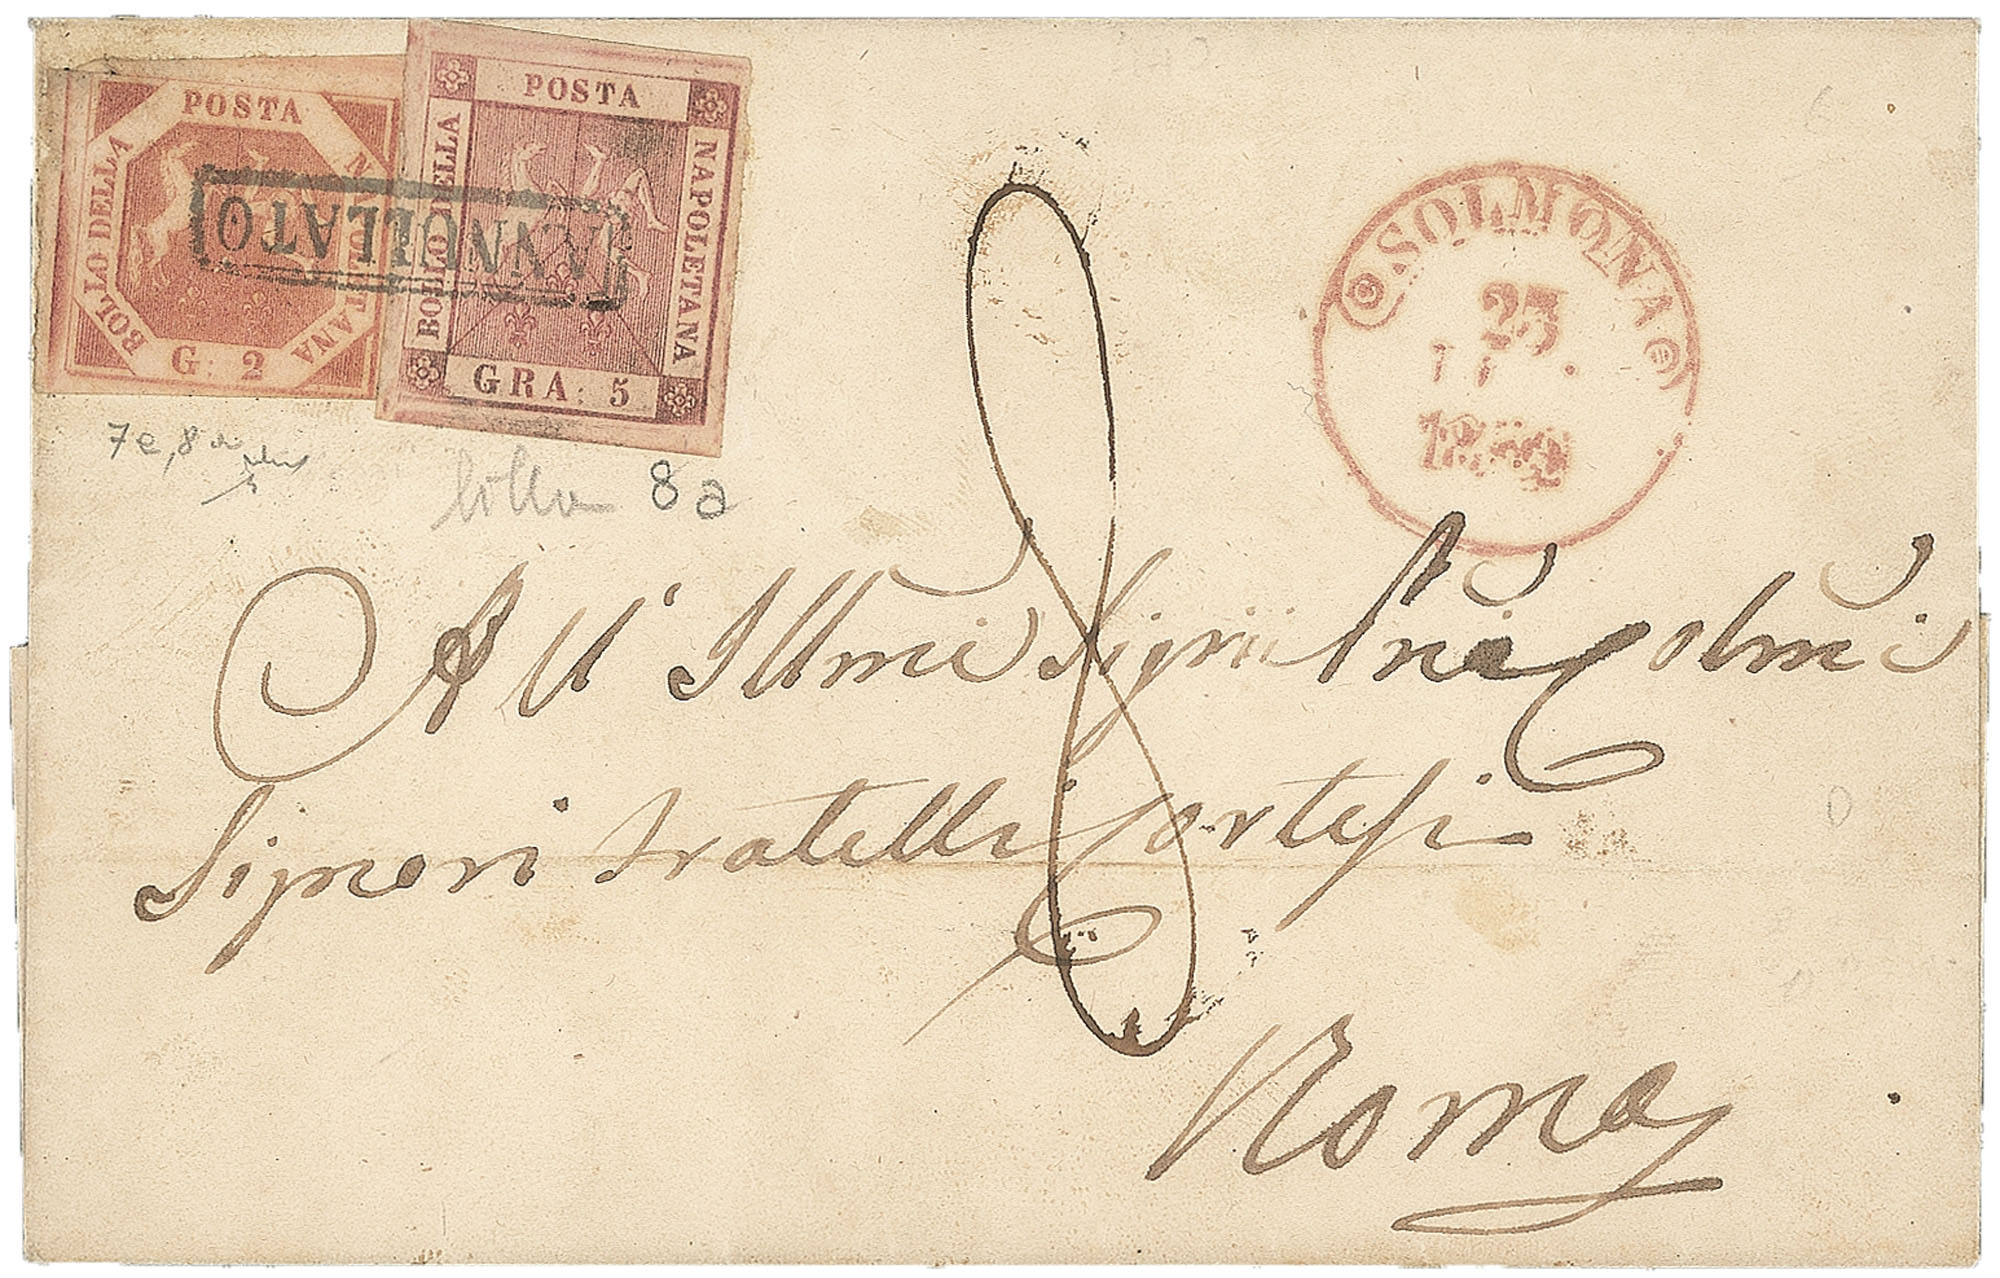 POSTA
BOLLO DELLA
NAPOLETANA
G. 2
POSTA
BOLLO DELLA
NAPOLETANA
GRA. 5
ANNULLATO
SOLMONA
23
8
7e, 8
8a
All' Illmi Sigrii Pnĩ Colmi
Signori Fratelli Cortesi
Roma